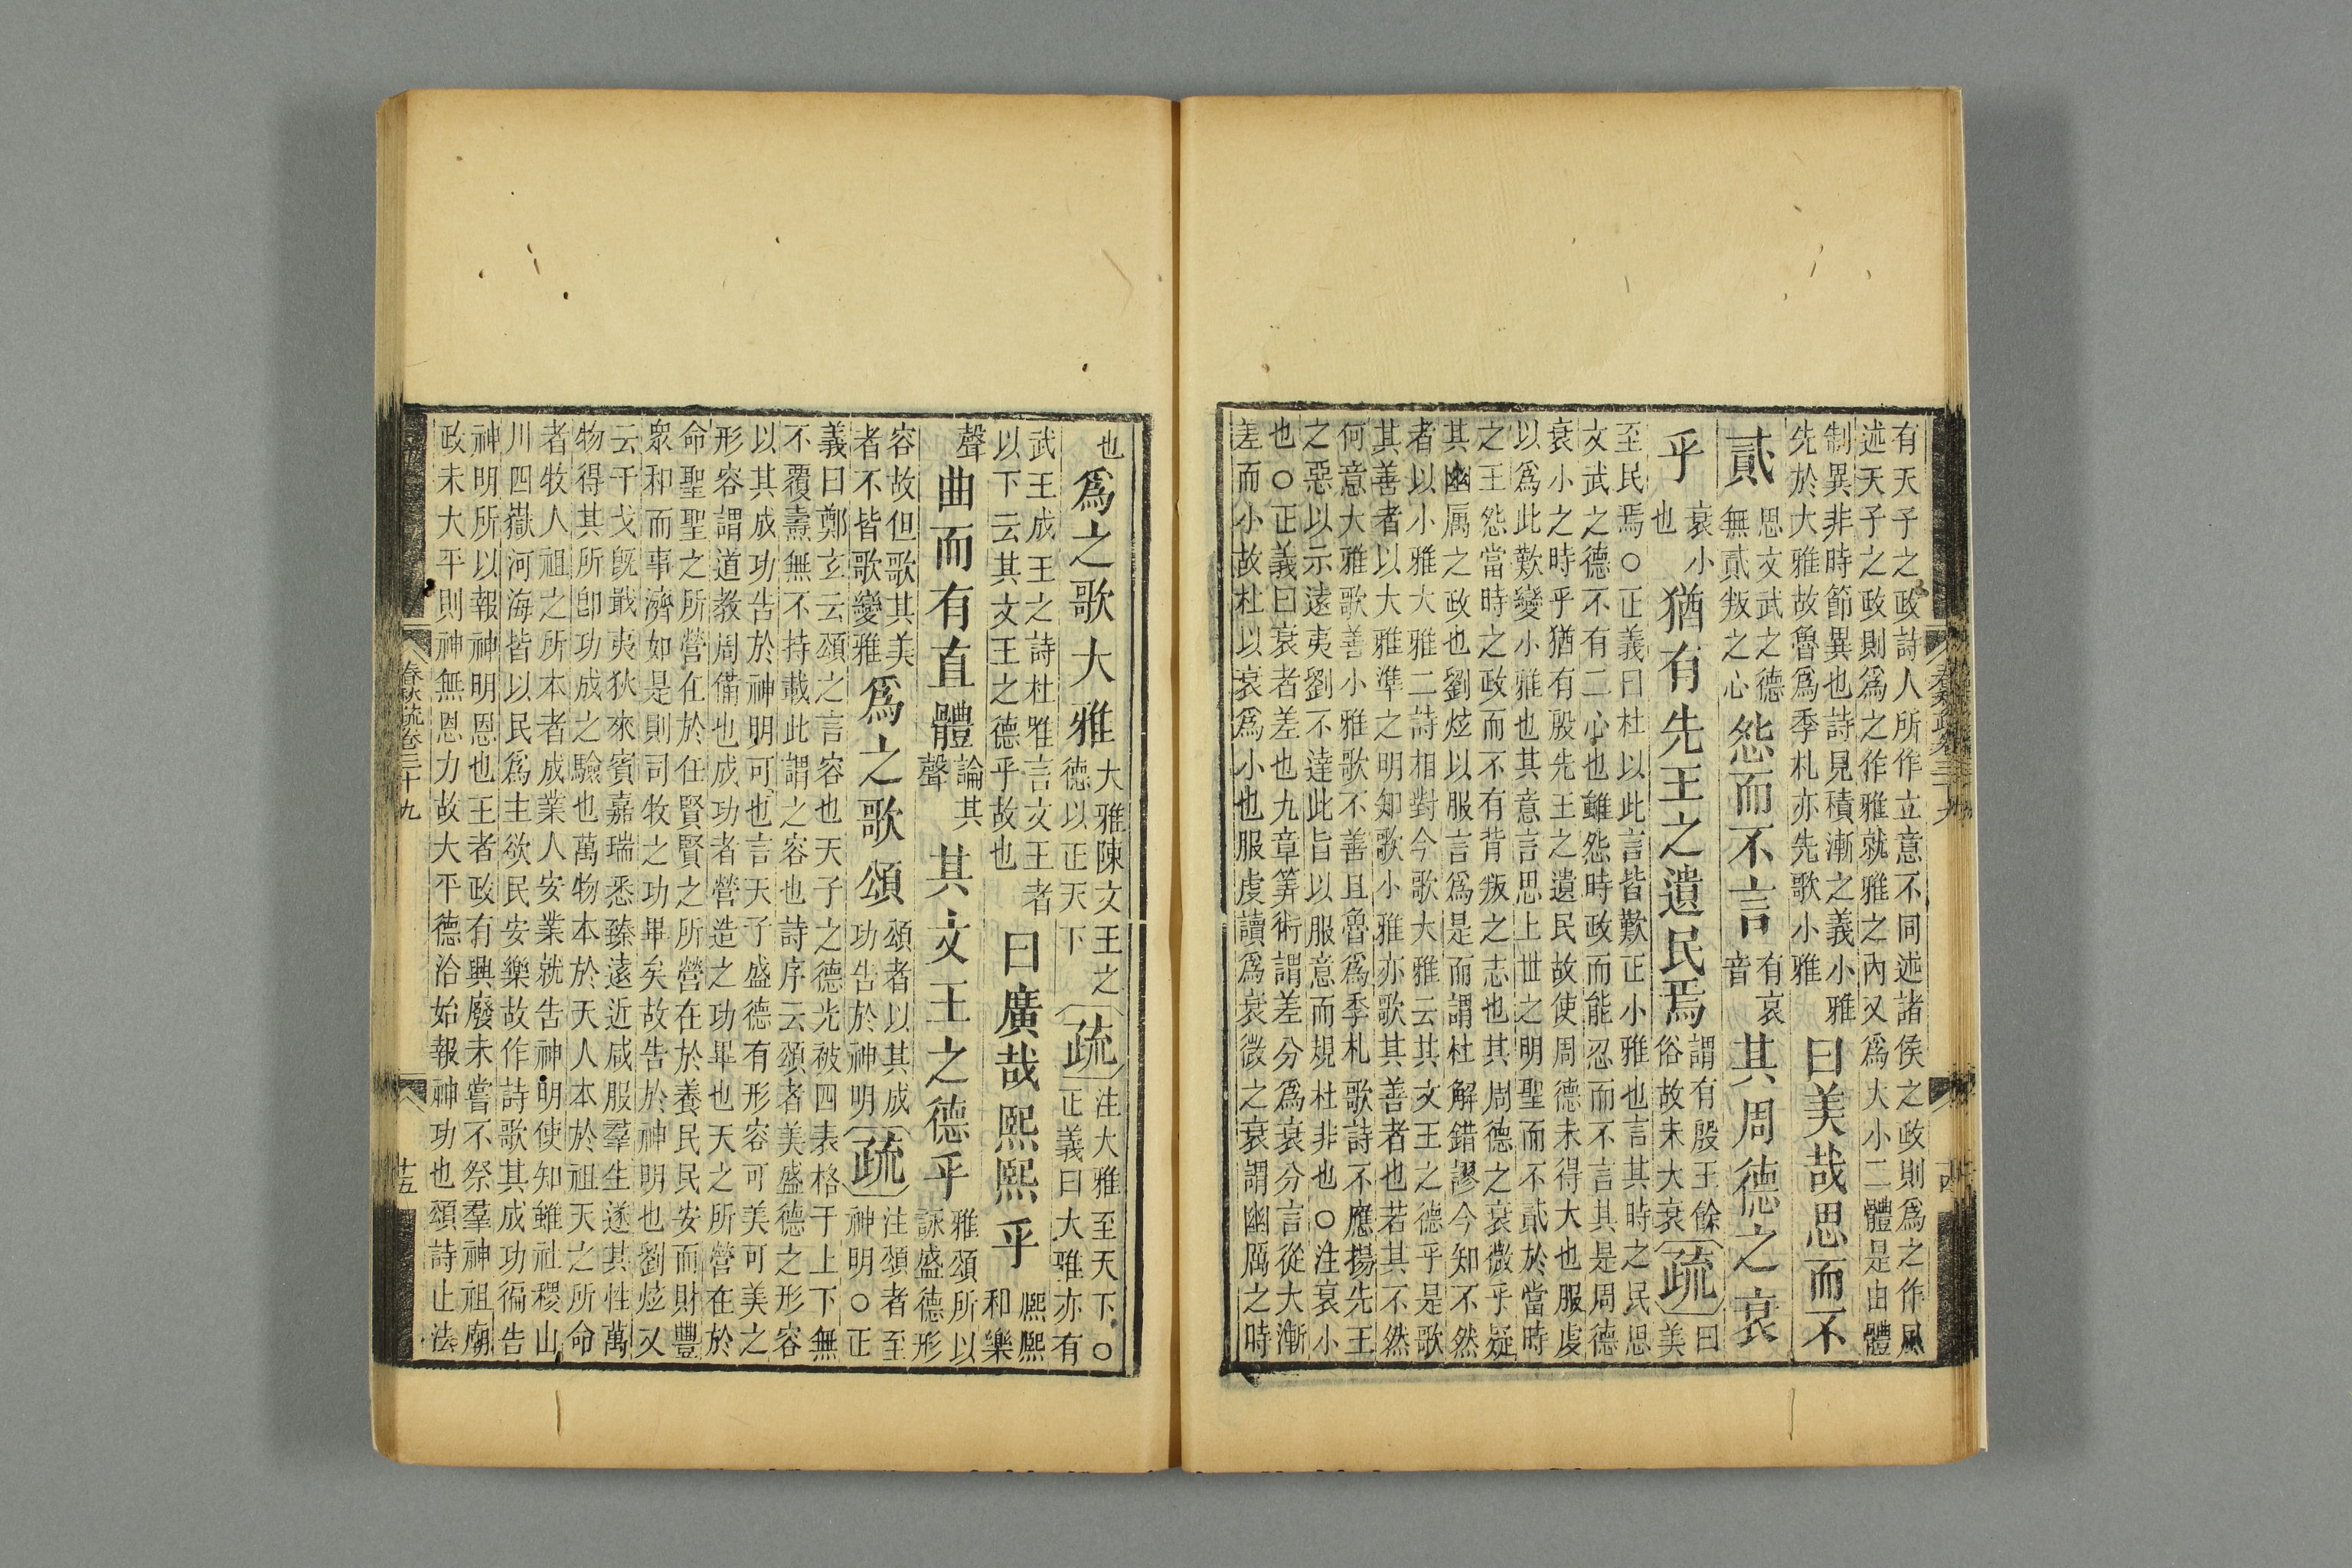 有天子之政詩人所作立意不同述諸侯之政則爲之作風
述天子之政則爲之作雅就雅之內又爲大小二體是由體
制異非時節異也詩見積漸之義小雅
先於大雅故魯爲季札亦先歌小雅
曰美哉思而不
貳
思文武之德
無貳叛之心
怨而不言
有哀
音
其周德之衰
乎
衰小
也
猶有先王之遺民焉
謂有殷王餘
俗故未大衰
疏
曰
美
至民焉○正義曰杜以此言皆歎正小雅也言其時之民思
文武之德不有二心也雖怨時政而能忍而不言其是周德
衰小之時乎猶有殷先王之遺民故使周德未得大也服虔
以爲此歎變小雅也其意言思上世之明聖而不貳於當時
之王怨當時之政而不有背叛之志也其周德之衰微乎疑
其幽厲之政也劉炫以服言爲是而謂杜解錯謬今知不然
者以小雅大雅二詩相對今歌大雅云其文王之德乎是歌
其善者以大雅準之明知歌小雅亦歌其善者也若其不然
何意大雅歌善小雅歌不善且魯爲季札歌詩不應揚先王
之惡以示遠夷劉不達此旨以服意而規杜非也○注衰小
也○正義曰衰者差也九章筭術謂差分爲衰分言從大漸
差而小故杜以衰爲小也服虔讀爲衰微之衰謂幽厲之時
也
爲之歌大雅
大雅陳文王之
德以正天下
疏
注大雅至天下○
正義曰大雅亦有
武王成王之詩杜雅言文王者
以下云其文王之德乎故也
曰廣哉熙熙乎
熙熙
和樂
聲
曲而有直體
論其
聲
其文王之德乎
雅頌所以
詠盛德形
容故但歌其美
者不皆歌變雅
爲之歌頌
頌者以其成
功告於神明
疏
注頌者至
神明○正
義曰鄭玄云頌之言容也天子之德光被四表格于上下無
不覆燾無不持載此謂之容也詩序云頌者美盛德之形容
以其成功告於神明可也言天子盛德有形容可美可美之
形容謂道教周備也成功者營造之功畢也天之所營在於
命聖聖之所營在於任賢賢之所營在於養民民安而財豐
眾和而事濟如是則司牧之功畢矣故告於神明也劉炫又
云干戈旣戢夷狄來賓嘉瑞悉臻遠近咸服羣生遂其性萬
物得其所卽功成之驗也萬物本於天人本於祖天之所命
者牧人祖之所本者成業人安業就告神明使知雖社稷山
川四嶽河海皆以民爲主欲民安樂故作詩歌其成功徧告
神明所以報神明恩也王者政有興廢未嘗不祭羣神祖廟
政未大平則神無恩力故大平德洽始報神功也頌詩止法
春秋疏卷三十九
十五